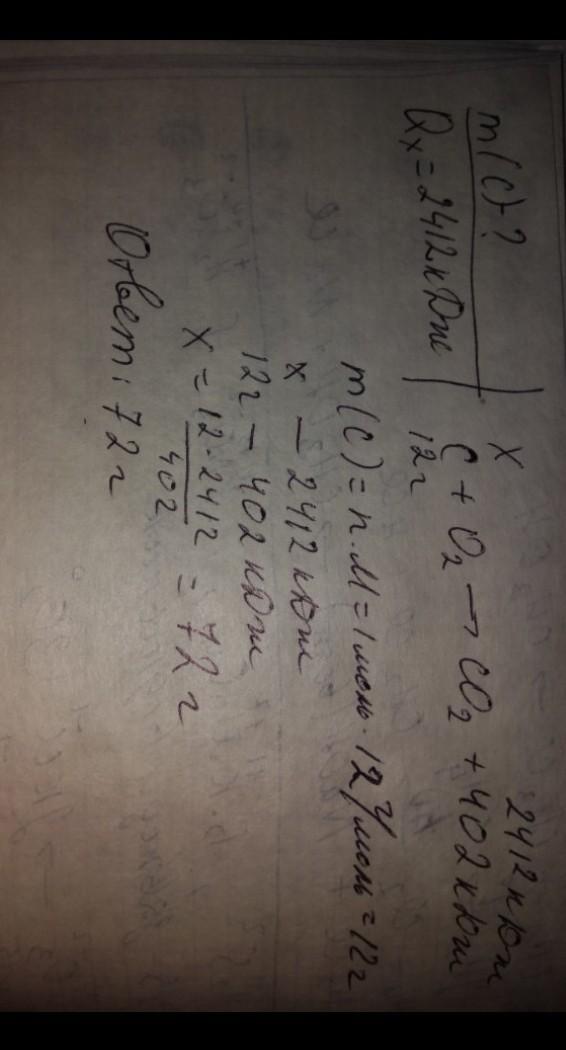 m(C)-?
Qx = 2412 кДж
x 2412 кДж
C + O₂ → CO₂ + 402 кДж
12г
m(C) = n·M = 1 моль · 12 г/моль = 12г
x — 2412 кДж
12г — 402 кДж
x = 12·2412/402 = 72 г
Ответ: 72 г